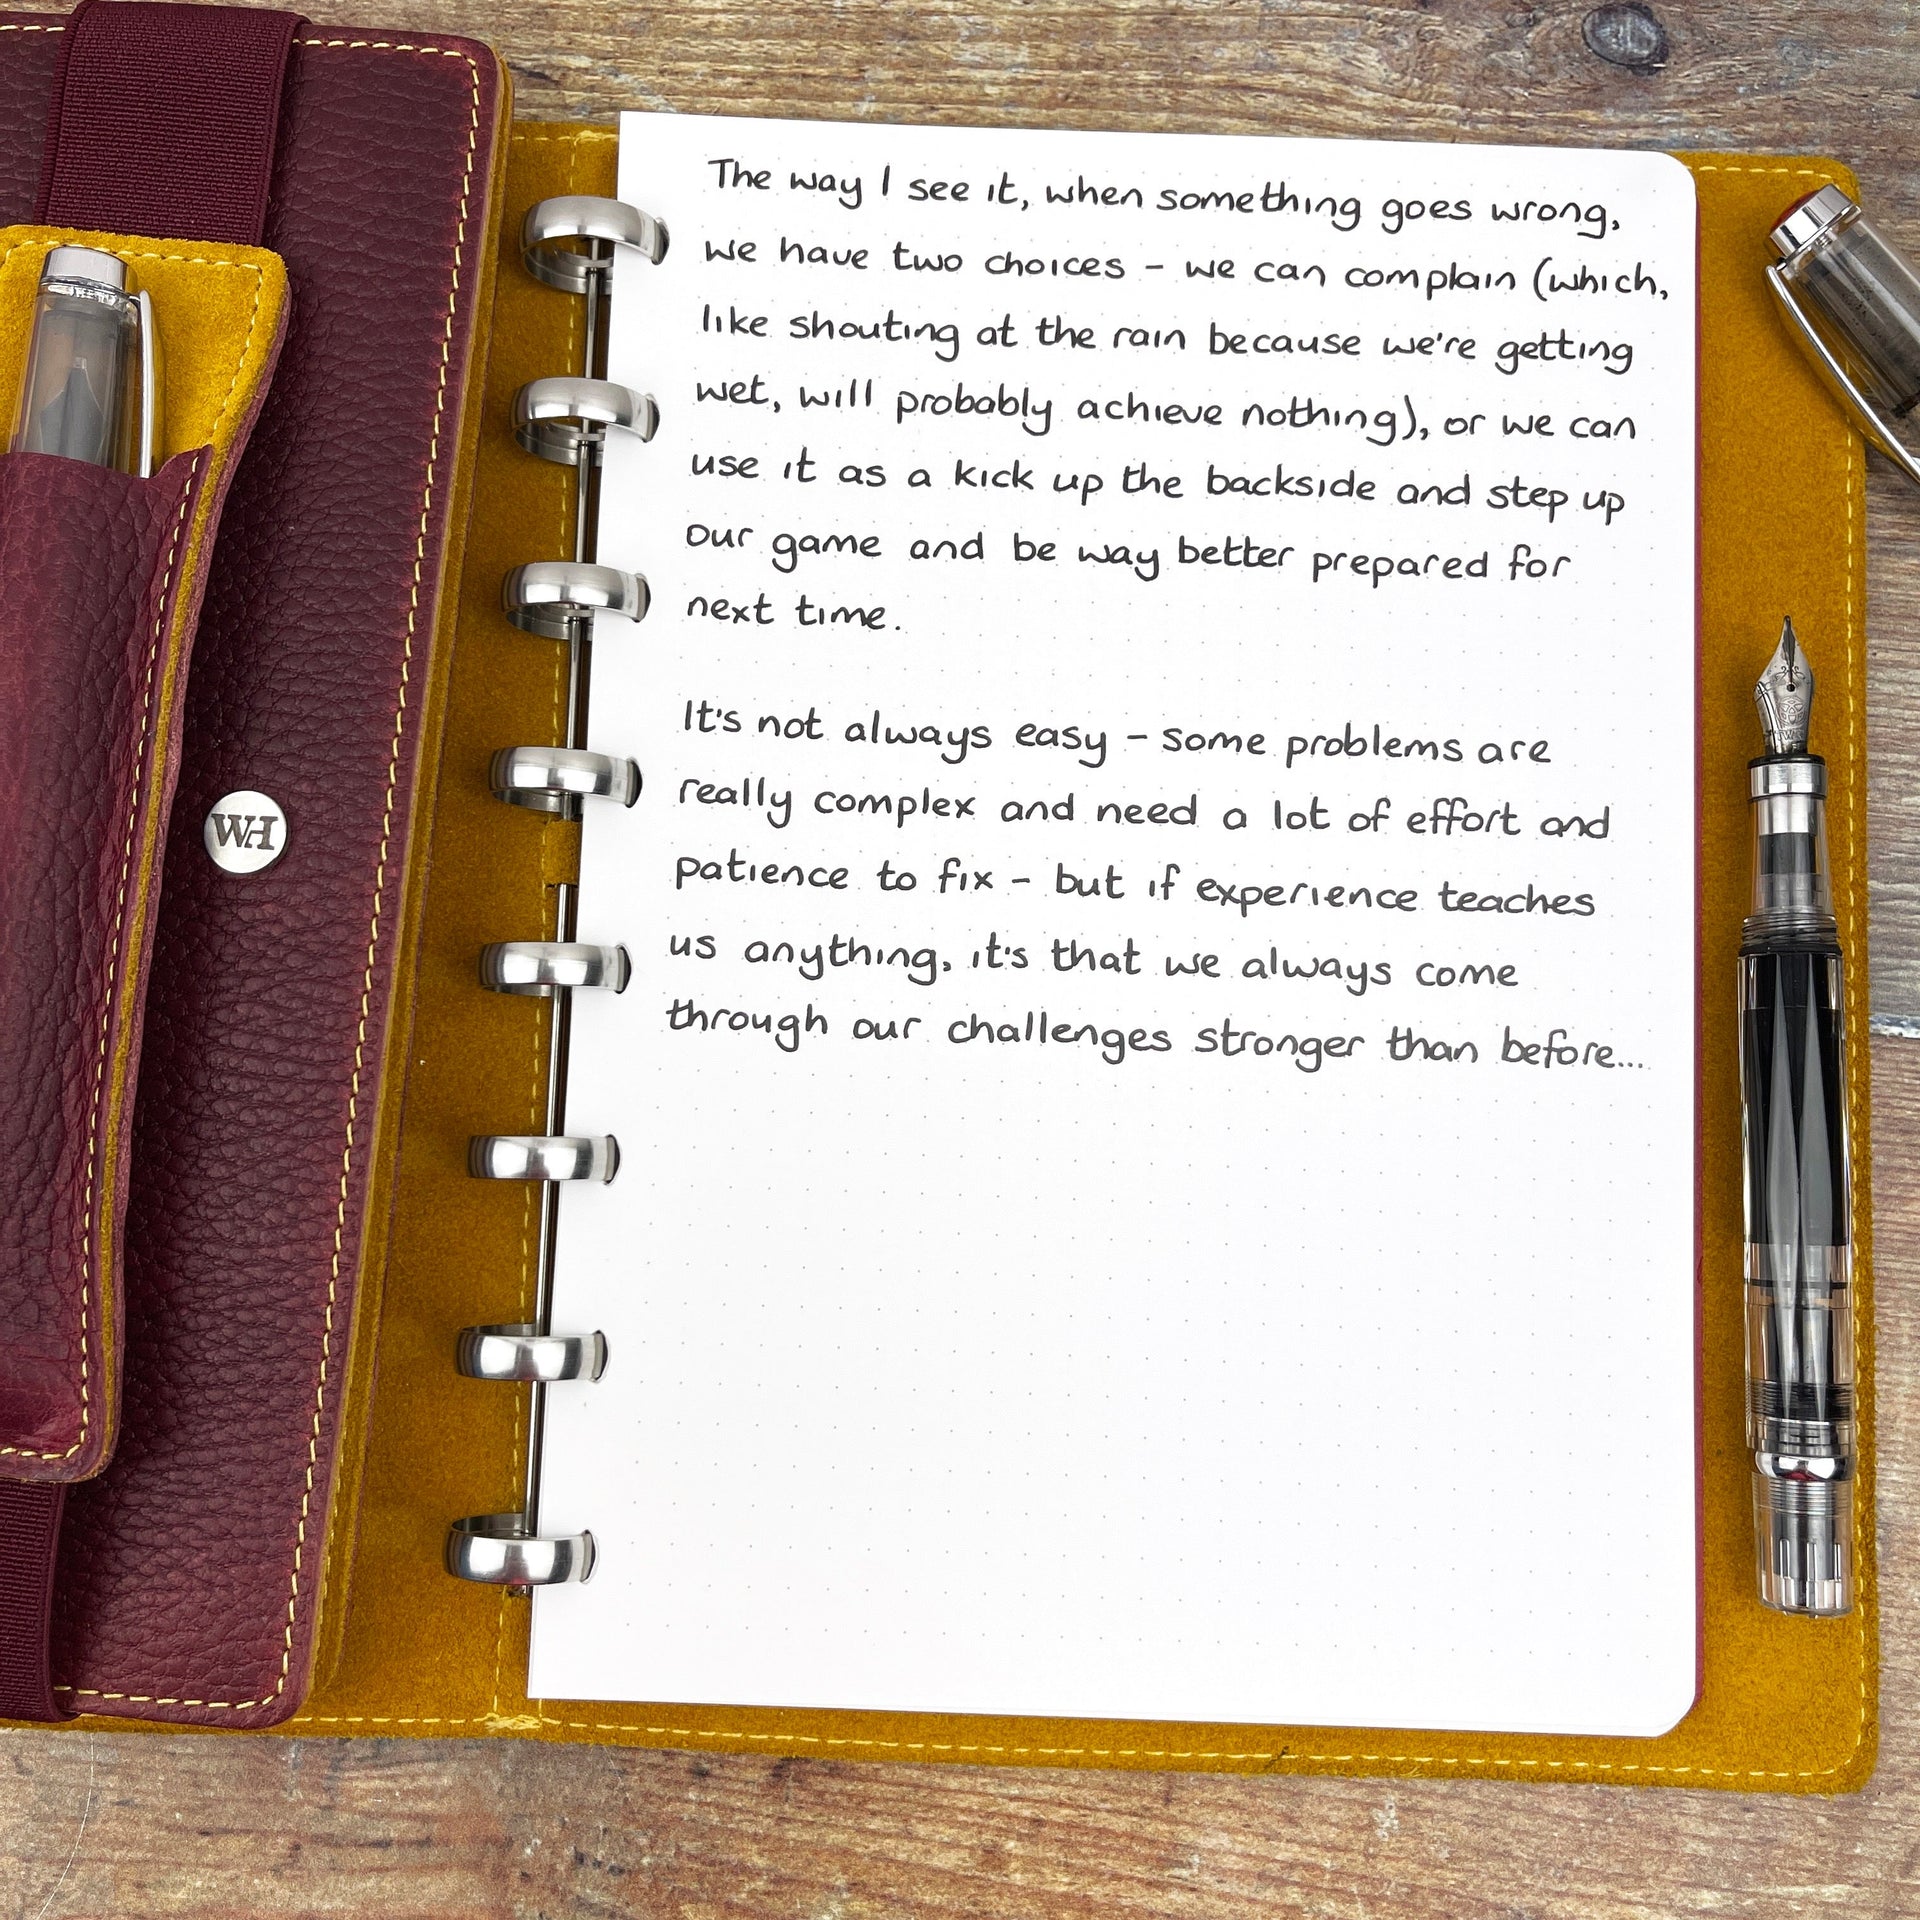 The way I see it, when something goes wrong,
we have two choices - we can complain (which,
like shouting at the rain because we're getting
wet, will probably achieve nothing), or we can
use it as a kick up the backside and step up
our game and be way better prepared for
next time.
It's not always easy - some problems are
really complex and need a lot of effort and
patience to fix - but if experience teaches
us anything, it's that we always come
through our challenges stronger than before...
WH